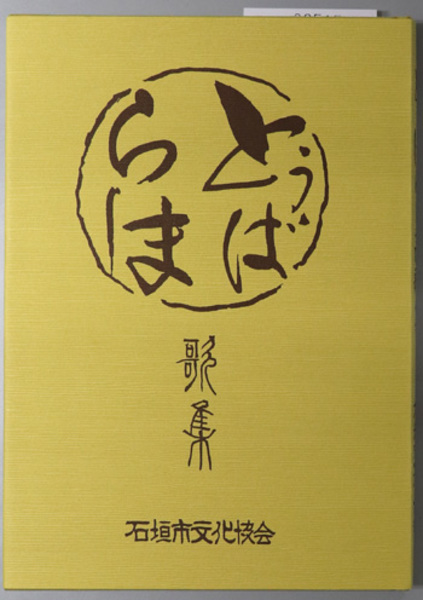 とぅば
らま
歌集
石垣市文化協会